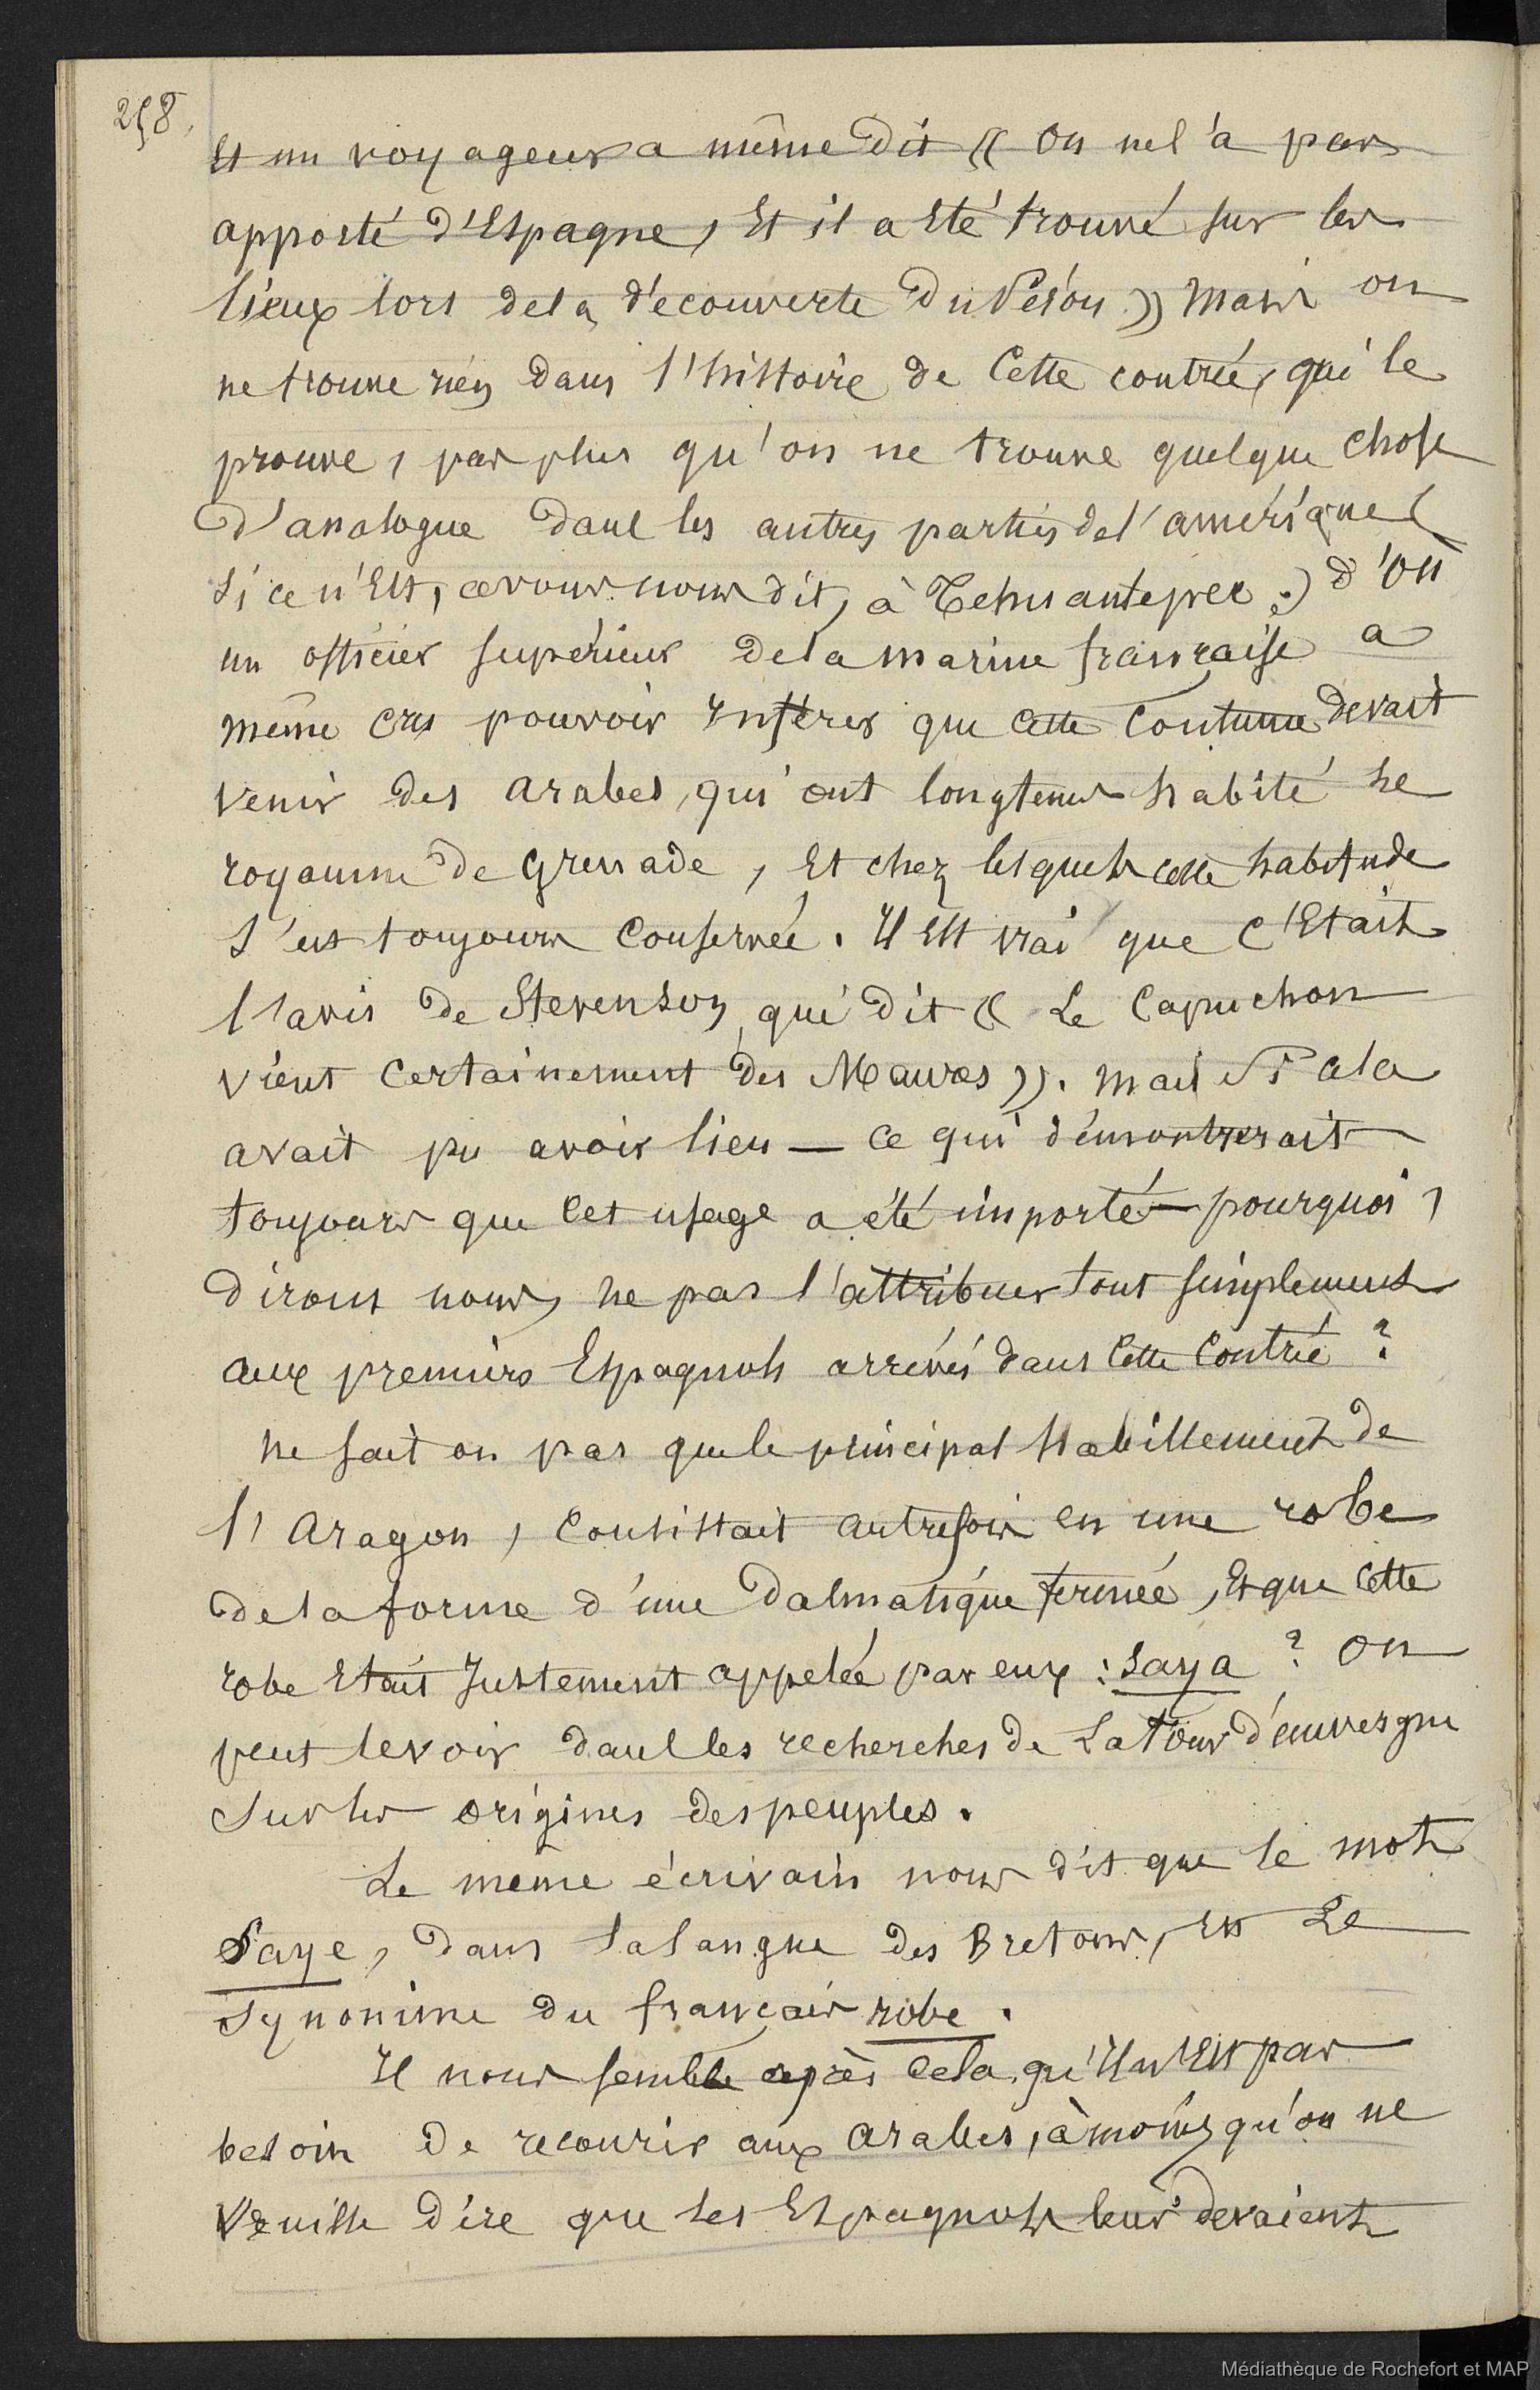 258.
Et un voyageur a même dit « On ne l'a pas
apporté d'Espagne, Et il a Eté trouvé sur les
lieux lors de la d'écouverte du Pérou » Mais on
ne trouve rien dans l'histoire de Cette contrée, qui le
prouve, pas plus qu'on ne trouve quelque chose
d'analogue dans les autres parties de l'amérique (
si ce n'Est, avons nous dit, à Tehuantepec.) d'où
un officier supérieur de la marine française a
même cru pouvoir Inférer que Cette Coutume devait
venir des arabes, qui ont longtems habité le
royaume de Grenade, Et chez lesquels cette habitude
s'est toujours Conservée. Il Est vrai que c'Etait
l'avis de Stevenson, qui dit « Le Capuchon
vient Certainement des Maures ». mais si cela
avait pu avoir lieu — ce qui démontrerait
toujours que Cet usage a été importé — pourquoi,
dirons nous, ne pas l'attribuer tout simplement
aux premiers Espagnols arrivés dans Cette Contrée ?
ne sait on pas que le principal habillement de
l'Aragon, Consistait autrefois en une robe
de la forme d'une Dalmatique fermée, Et que Cette
robe Etait Justement appelée par eux : saya ? On
peut le voir dans les recherches de Latour d'auvergne
sur les origines des peuples.
Le même écrivain nous dit que le mot
Saye, dans la langue des Bretons, Est Le
synonime du français robe.
Il nous semble après Cela, qu'Il n'Est pas
besoin de recourir aux arabes, à moins qu'on ne
veuille dire que les Espagnols leur devaient
Médiathèque de Rochefort et MAP